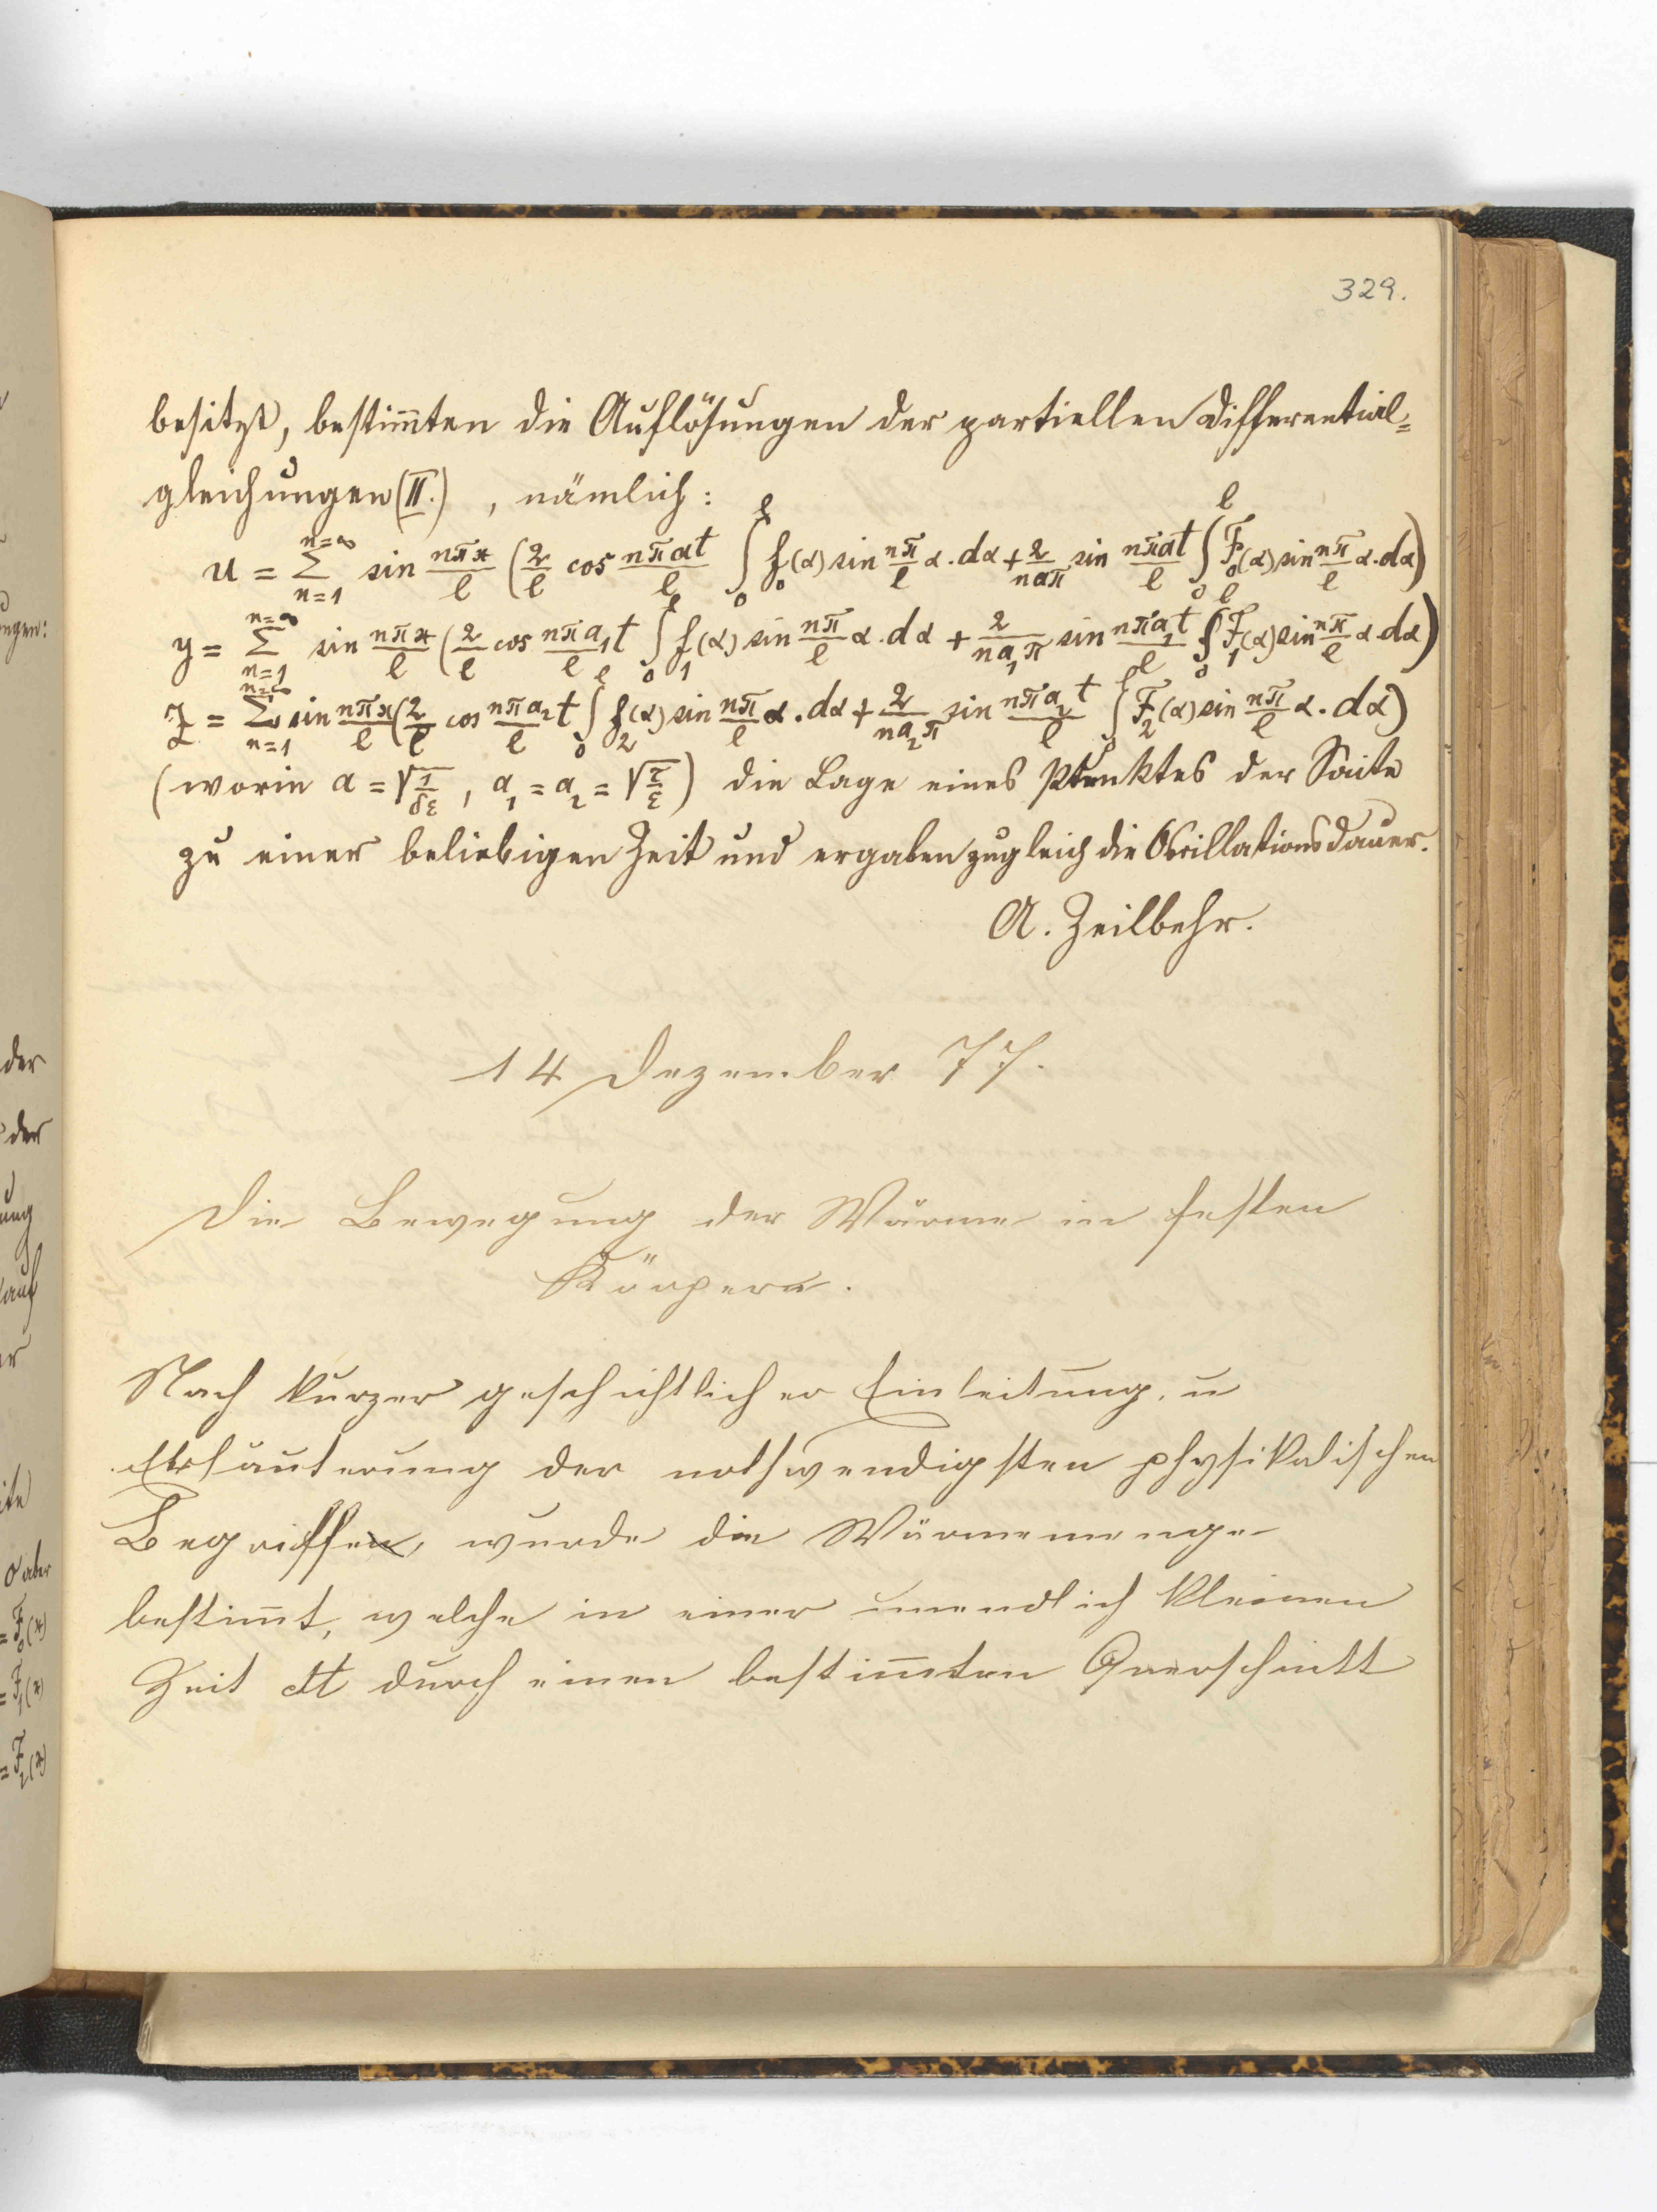 329.
besitzt, bestim̄ten die Auflösungen der partiellen Differential=
gleichungen (II.), nämlich:
u = Σ_{n=1}^{n=∞} sin nπx/l (2/l cos nπat/l ∫_0^l f_0(α) sin nπ/l α.dα + 2/naπ sin nπat/l ∫_0^l F_0(α) sin nπ/l α.dα)
y = Σ_{n=1}^{n=∞} sin nπx/l (2/l cos nπa_1t/l ∫_0^l f_1(α) sin nπ/l α.dα + 2/na_1π sin nπa_1t/l ∫_0^l F_1(α) sin nπ/l α.dα)
z = Σ_{n=1}^{n=∞} sin nπx/l (2/l cos nπa_2t/l ∫_0^l f_2(α) sin nπ/l α.dα + 2/na_2π sin nπa_2t/l ∫_0^l F_2(α) sin nπ/l α.dα)
(worin a = √1/δε, a_1 = a_2 = √τ/ε) die Lage eines Punktes der Saite
zu einer beliebigen Zeit und ergaben zugleich die Oscillationsdauer.
A. Zeilbehr.
14 Dezember 77.
Die Bewegung der Wärme in festen
Körpern.
Nach kurzer geschichtlicher Einleitung, u
Erläuterung der nothwendigsten physikalischen
Begriffe, wurde die Wärmemenge
bestim̄t, welche in einer unendlich kleinen
Zeit dt durch einen bestim̄ten Querschnitt
der
der
ung
auf
er
ite
aber
= F_0(x)
= F_1(x)
= F_2(x)